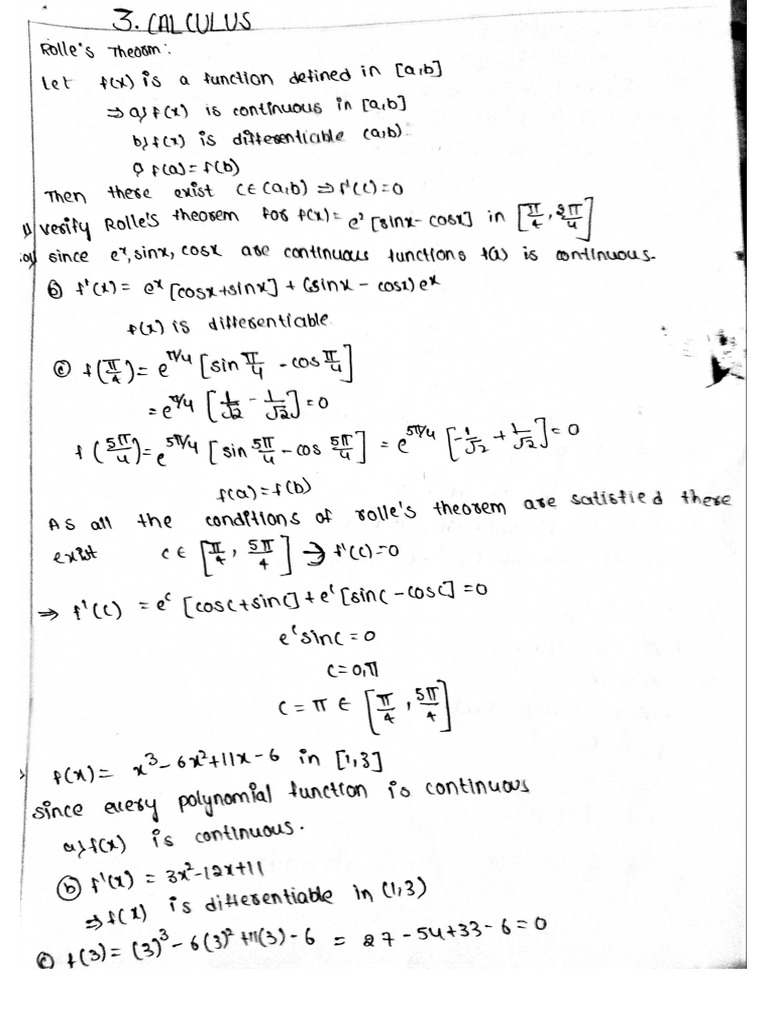 3. CALCULUS
Rolle's Theorm:
Let f(x) is a function defined in [a,b]
⇒ a) f(x) is continuous in [a,b]
b) f(x) is differentiable (a,b)
c) f(a) = f(b)
Then there exist c ∈ (a,b) ⇒ f'(c) = 0
1) verify Rolle's theorem for f(x) = eˣ [sinx - cosx] in [π/4, 5π/4]
a) since eˣ, sinx, cosx are continuous functions f(x) is continuous.
b) f'(x) = eˣ [cosx + sinx] + (sinx - cosx) eˣ
f(x) is differentiable
c) f(π/4) = e^π/4 [sin π/4 - cos π/4]
= e^π/4 [1/√2 - 1/√2] = 0
f(5π/4) = e^5π/4 [sin 5π/4 - cos 5π/4] = e^5π/4 [-1/√2 + 1/√2] = 0
f(a) = f(b)
As all the conditions of rolle's theorem are satisfied there
exist c ∈ [π/4, 5π/4] → f'(c) = 0
⇒ f'(c) = eᶜ [cosc + sinc] + eᶜ [sinc - cosc] = 0
eᶜ sinc = 0
c = 0, π
c = π ∈ [π/4, 5π/4]
f(x) = x³ - 6x² + 11x - 6 in [1,3]
since every polynomial function is continuous
a) f(x) is continuous.
b) f'(x) = 3x² - 12x + 11
⇒ f(x) is differentiable in (1,3)
c) f(3) = (3)³ - 6(3)² + 11(3) - 6 = 27 - 54 + 33 - 6 = 0